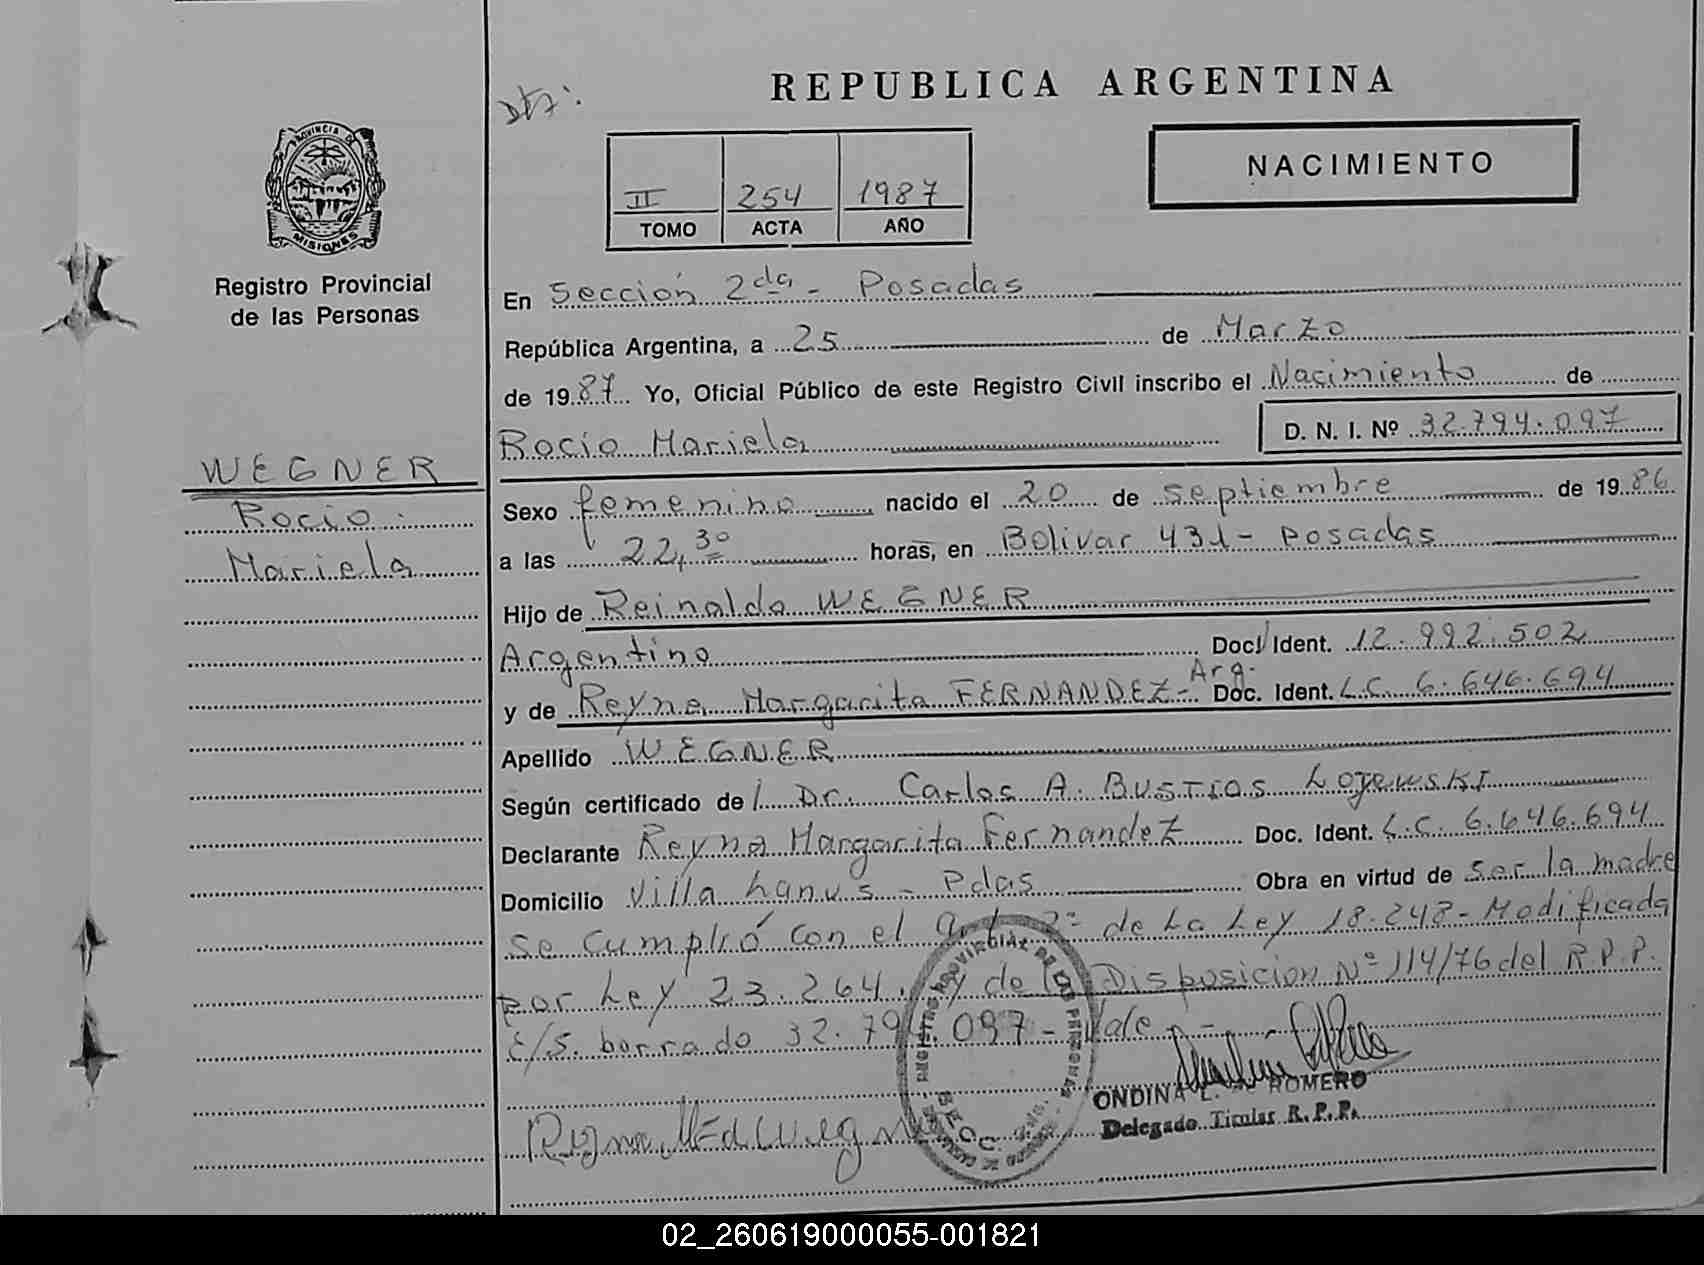 REPUBLICA ARGENTINA
NACIMIENTO
II 254 1987
TOMO ACTA AÑO
PROVINCIA DE
MISIONES
Registro Provincial
de las Personas
WEGNER
Rocio
Mariela
En Sección 2da - Posadas
República Argentina, a 25 de Marzo
de 1987 Yo, Oficial Público de este Registro Civil inscribo el Nacimiento de
Rocío Mariela D. N. I. Nº 32.794.097
Sexo femenino nacido el 20 de septiembre de 1986
a las 22,30 horas, en Bolivar 431 - Posadas
Hijo de Reinaldo WEGNER
Argentino Doc. Ident. 12.992.502
y de Reyna Margarita FERNANDEZ - Arg. Doc. Ident. L.C. 6.646.694
Apellido WEGNER
Según certificado de l Dr. Carlos A. Bustios Loyewski
Declarante Reyna Margarita Fernandez Doc. Ident. L.C. 6.646.694
Domicilio Villa Lanus - Pdas Obra en virtud de ser la madre
Se cumplió con el art. 2º de La Ley 18.248 - Modificada
por Ley 23.264. y de la Disposicion Nº 114/76 del R.P.P.
E/S. borrado 32.794.097 - Vale -
ONDINA L. ROMERO
Delegado Titular R. P. P.
02_260619000055-001821